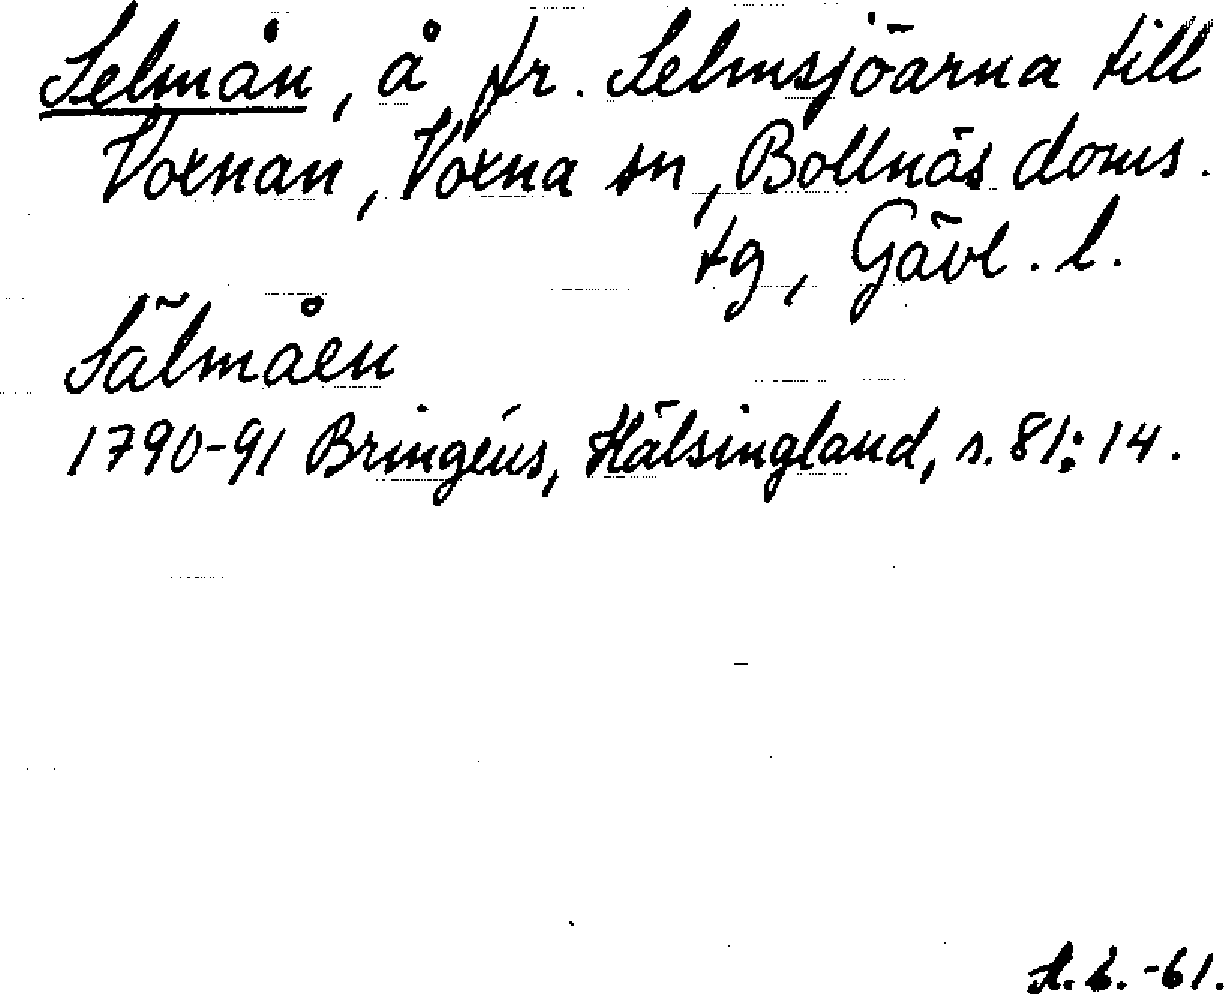 Selmån, å fr. Selmsjöarna till
Voxnan, Voxna sn, Bollnäs doms.
tg, Gävl. l.
Sälmåen
1790-91 Bringéus, Hälsingland, s. 81:14.
-61.